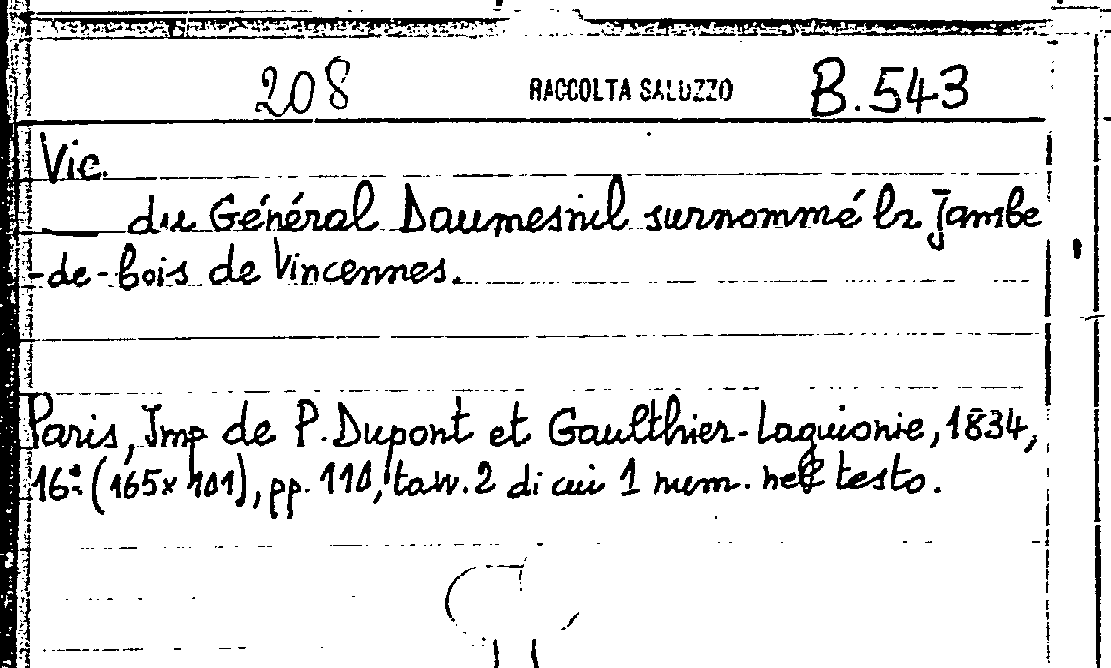 208 RACCOLTA SALUZZO B.543
Vie.
— du Général Daumesnil surnommé la Jambe
-de-bois de Vincennes.
Paris, Imp de P. Dupont et Gaulthier-Laguionie, 1834,
16° (165x101), pp. 110, tavv. 2 di cui 1 num. nel testo.